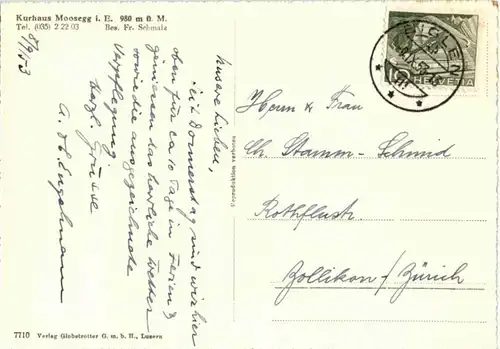 Kurhaus Moosegg i. E. 980 m ü. M.
Tel. (035) 2 22 03 Bes. Fr. Schmalz
8/9 53
Unsere Lieben,
seit Donnerstag sind wir hier
oben für ca 10 Tage in Ferien &
geniessen das herrliche Wetter
sowie die ausgezeichnete
Verpflegung
Herzl. Grüsse
Engelmann
HELVETIA
Herrn & Frau
Ch. Stamm-Schmid
Rothfluhstr.
Zollikon/Zürich
7710 Verlag Globetrotter G. m. b. H., Luzern